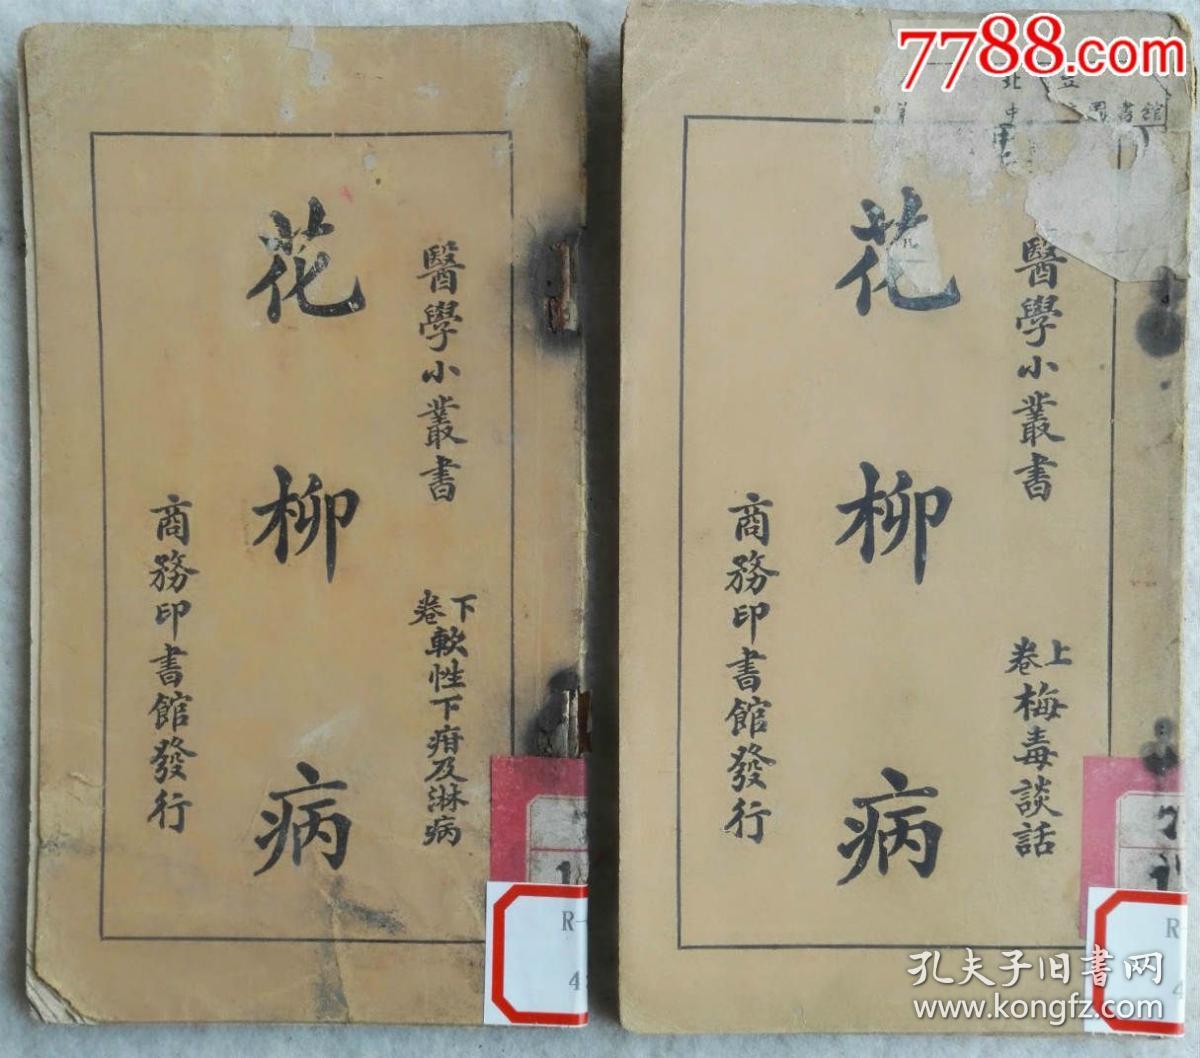 醫學小叢書
下卷 軟性下疳及淋病
花柳病
商務印書館發行
R-
4
7788.com
北
中
書館
醫學小叢書
上卷 梅毒談話
花柳病
商務印書館發行
R-
4
孔夫子旧书网
www.kongfz.com